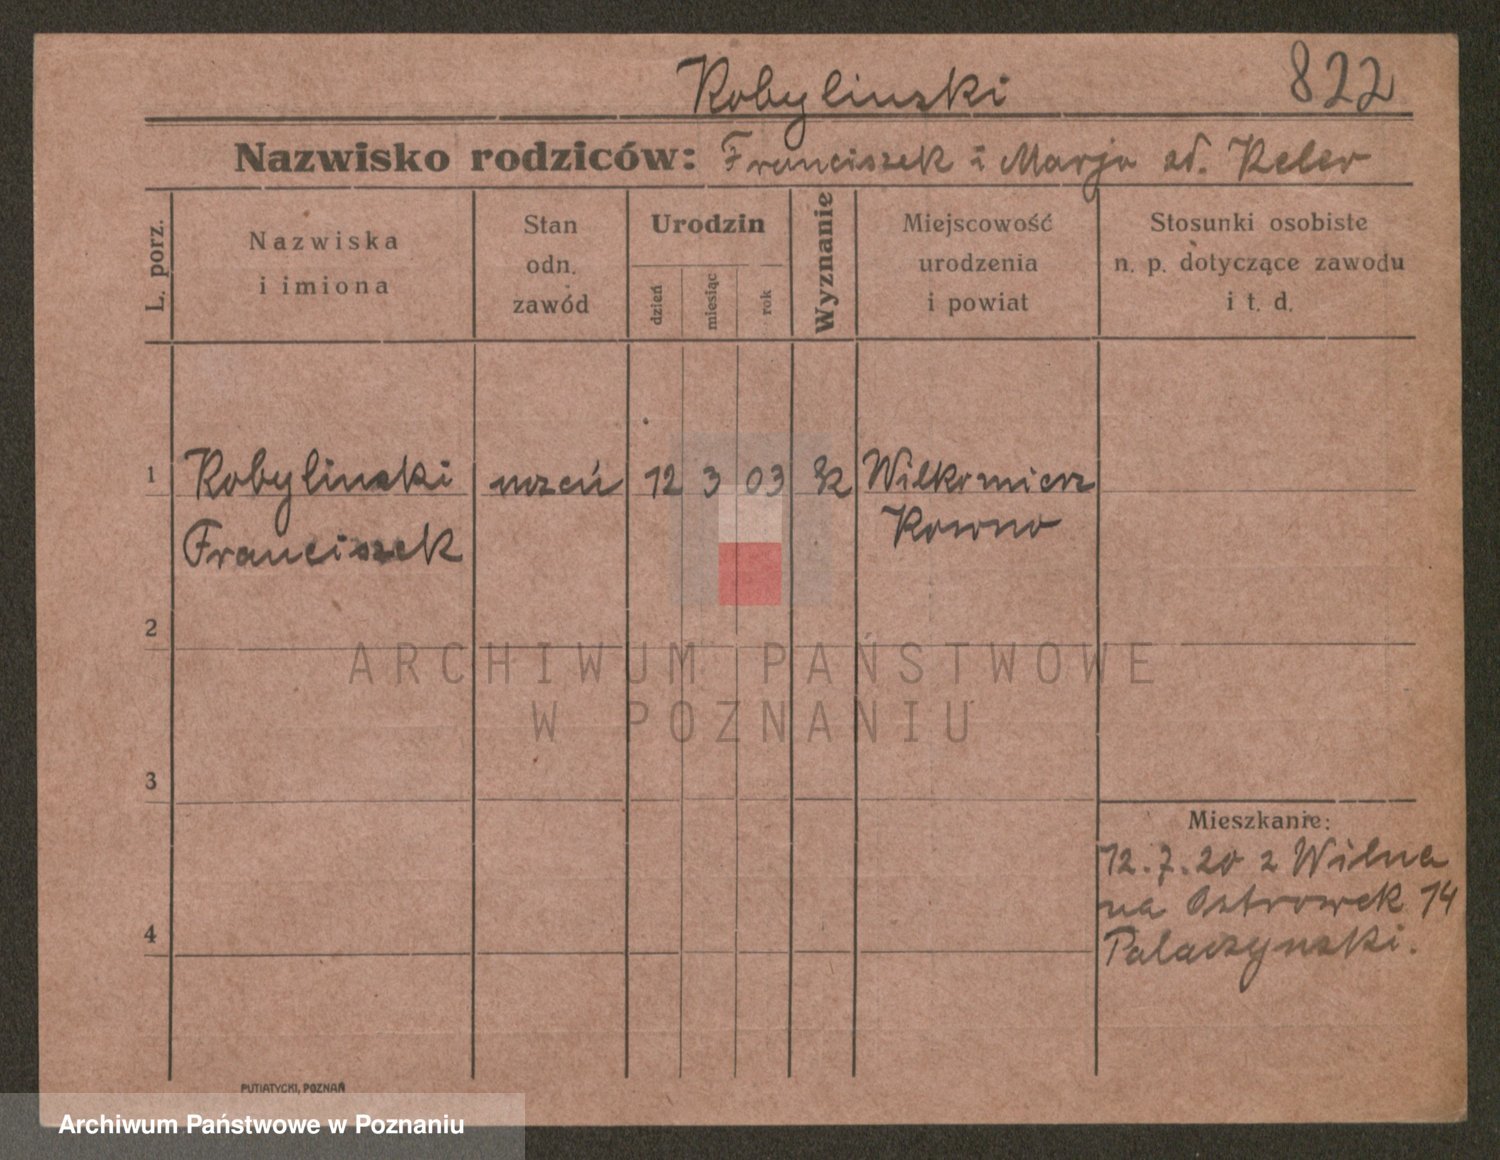 Kobylinski
822
Nazwisko rodziców: Franciszek i Marja zd. Keler
L. porz.
Nazwiska
i imiona
Stan
odn.
zawód
Urodzin
dzień
miesiąc
rok
Wyznanie
Miejscowość
urodzenia
i powiat
Stosunki osobiste
n. p. dotyczące zawodu
i t. d.
1
Kobylinski uczeń 12 3 03 rk Wilkomierz
Franciszek Kowno
2
3
4
Mieszkanie:
12.7.20 z Wilna
na Ostrowek 14
Palaczynski.
PUTIATYCKI, POZNAŃ
ARCHIWUM PAŃSTWOWE
W POZNANIU
Archiwum Państwowe w Poznaniu